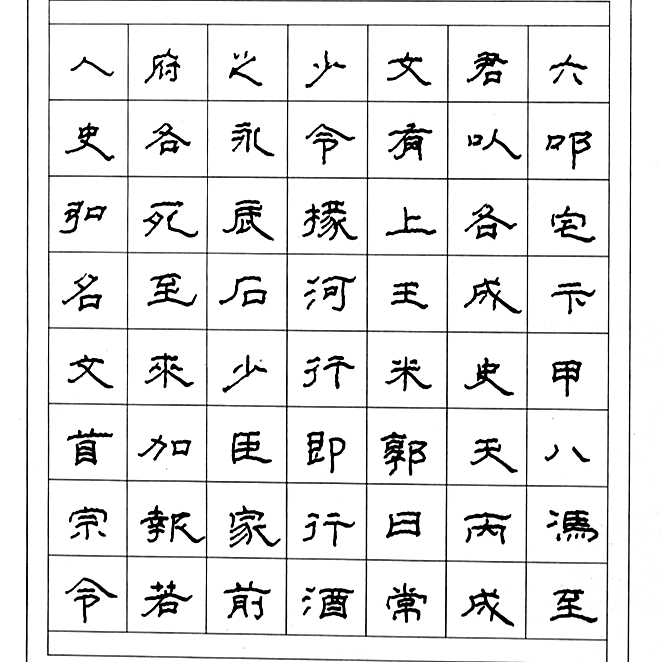 六叩宅卞甲八馮至
君以各成史天丙成
文有上王米郭日常
少令掾河行即行酒
之永辰石少臣家前
府各死至來加報若
人史弘名文首宗令